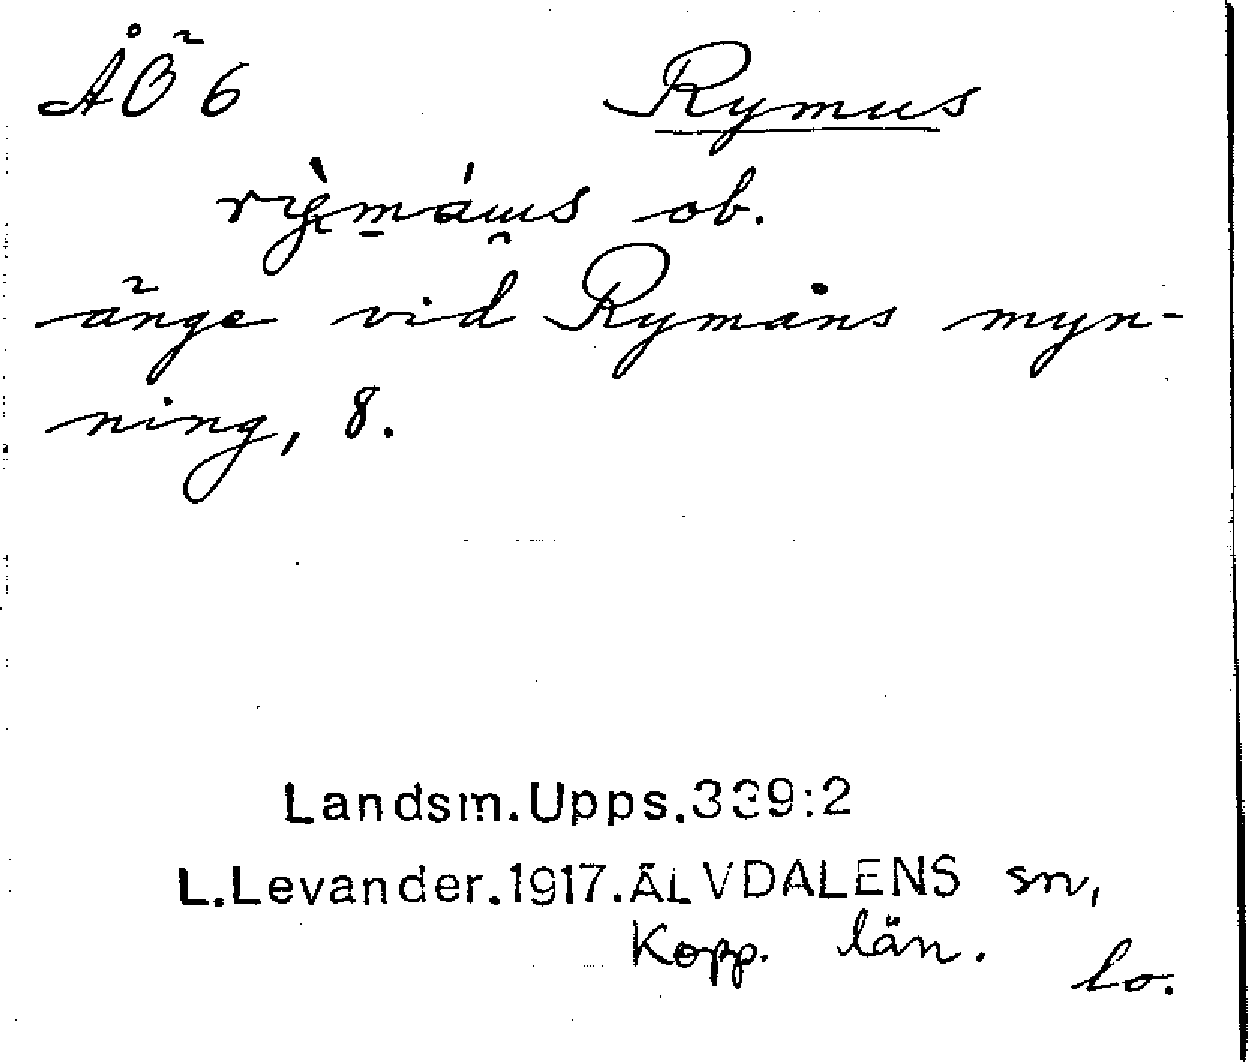 ÅÖ 6 Rymus
rỳ̠máu̯s ob.
änge vid Rymåns myn-
ning, 8.
Landsm.Upps.339:2
L.Levander.1917.ÄLVDALENS sn,
Kopp. län.
lo.